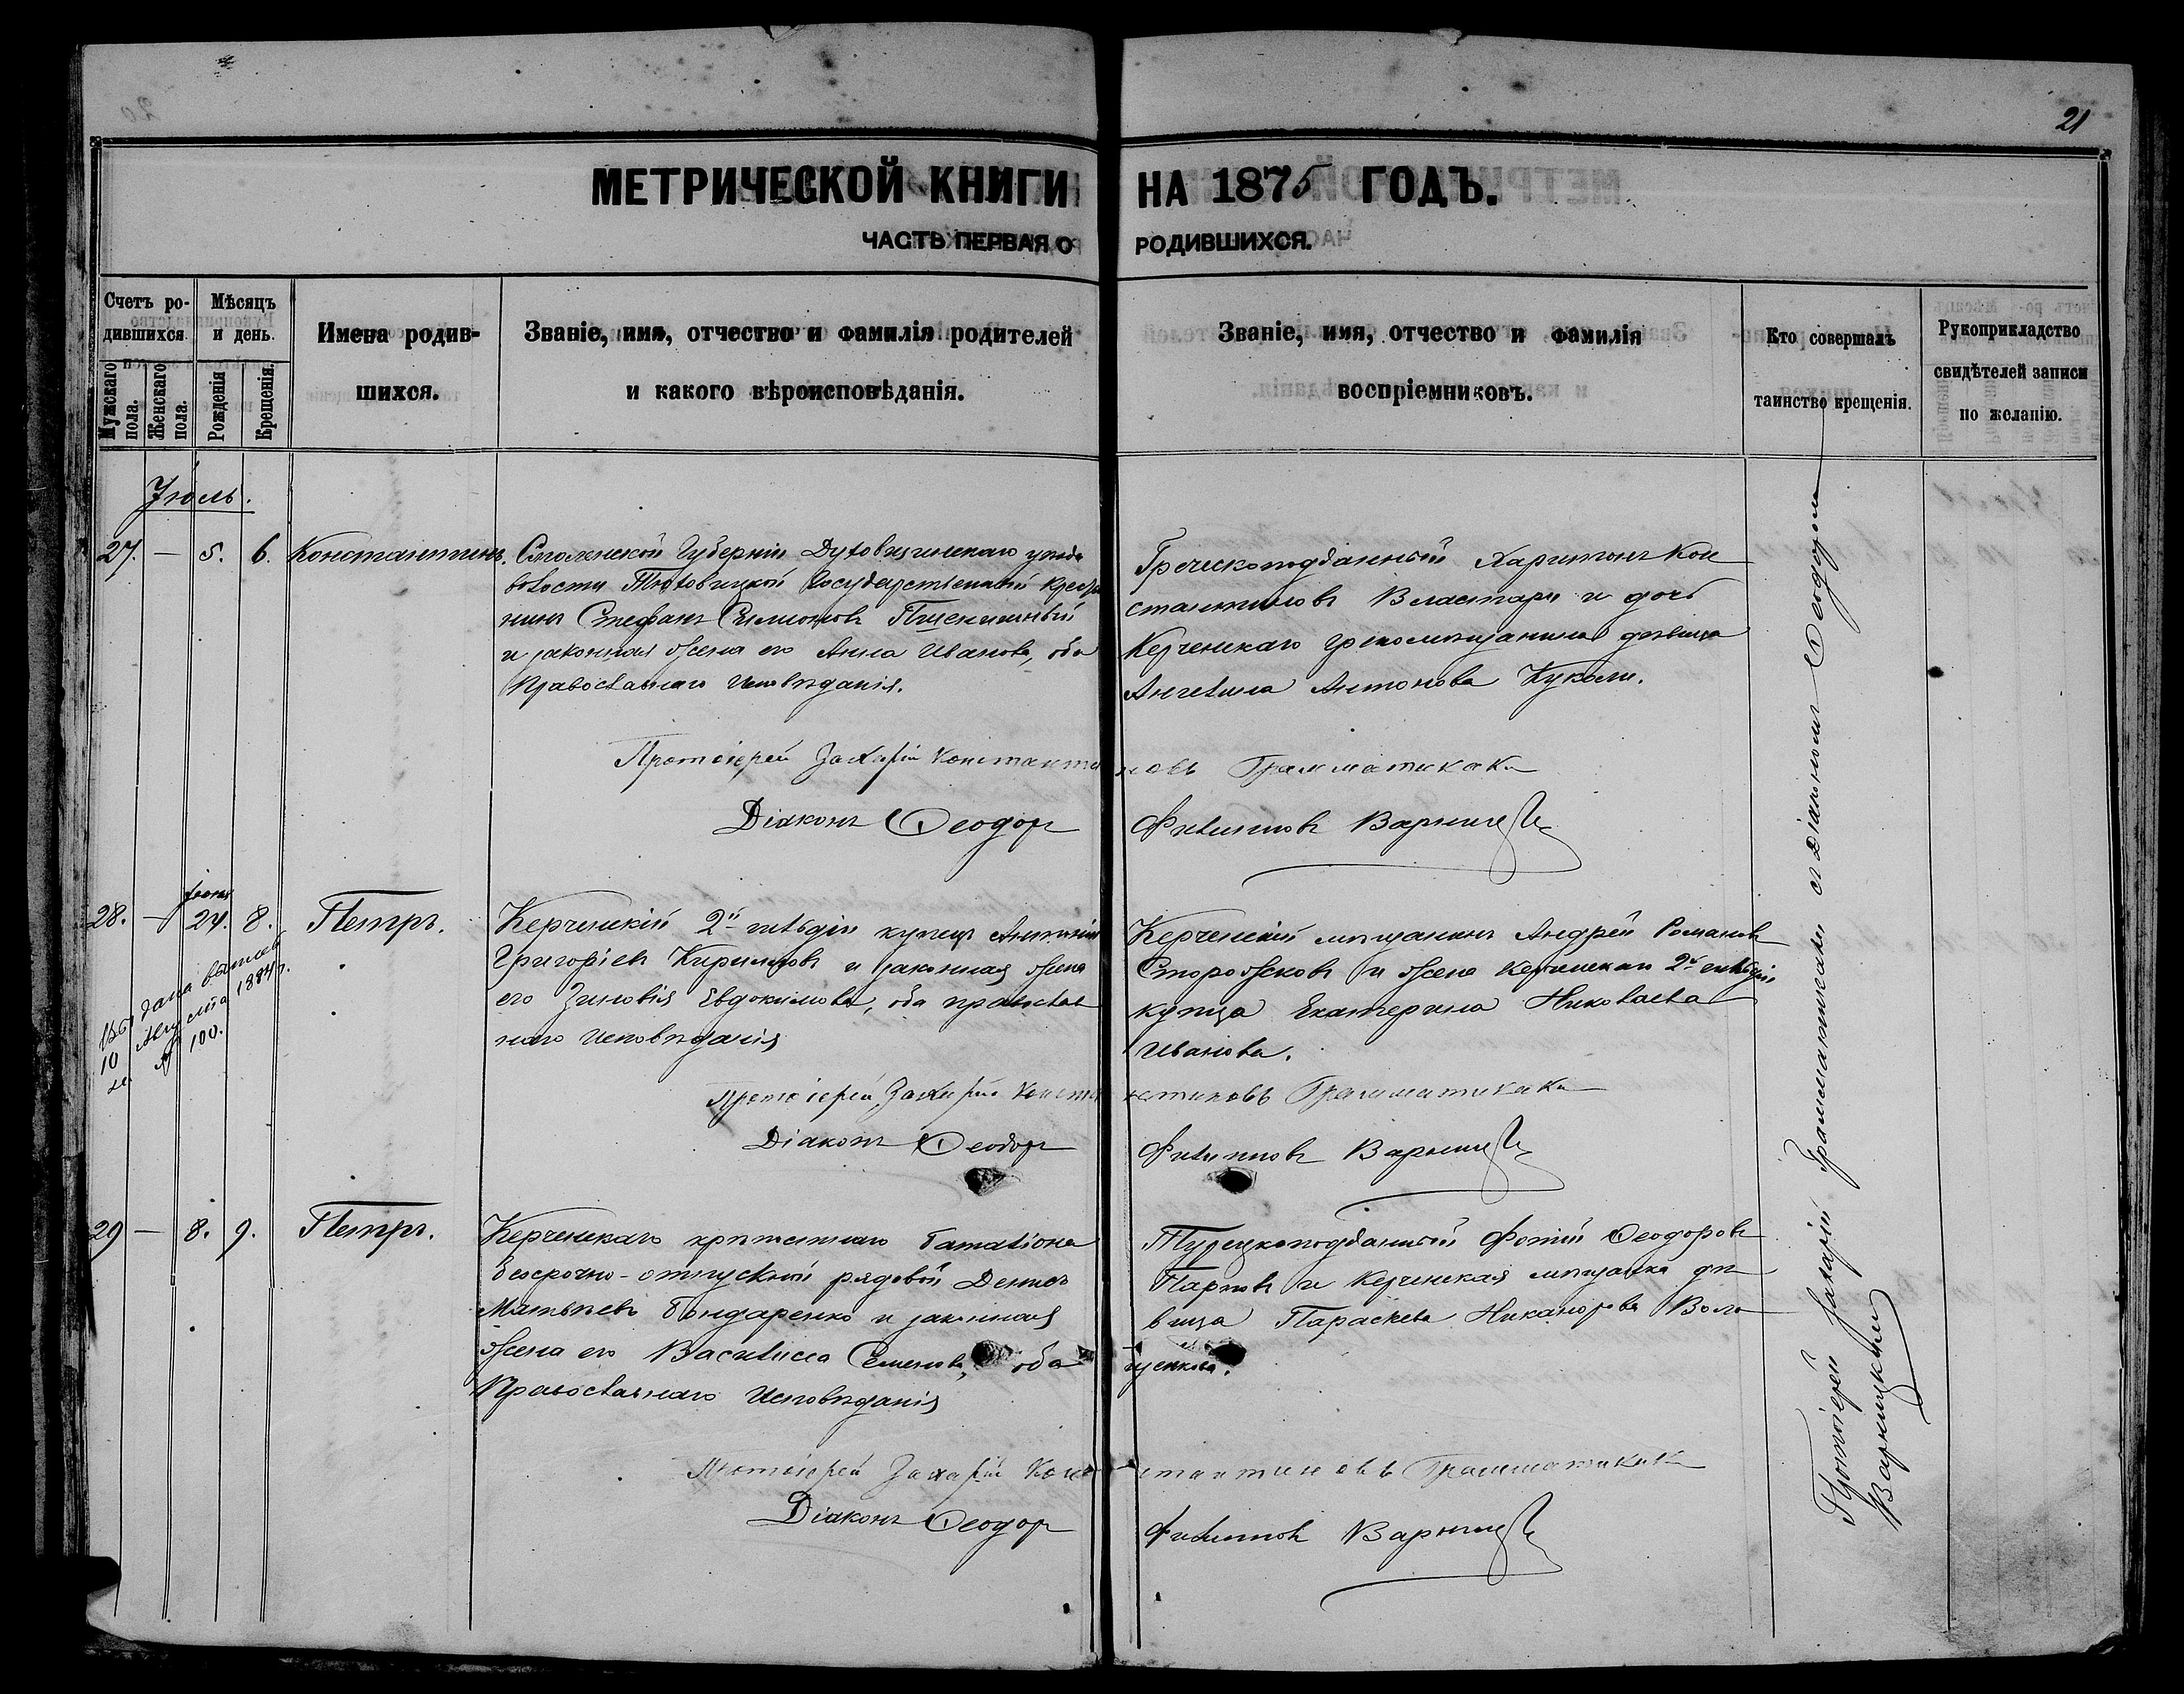 21
МЕТРИЧЕСКОЙ КНИГИ НА 1875 ГОДЪ.
ЧАСТЬ ПЕРВАЯ О РОДИВШИХСЯ.
Счетъ родившихся.
Мужскаго пола.
Женскаго пола.
Мѣсяцъ и день.
Рожденія
Крещенія.
Имена родив-
шихся.
Званіе, имя, отчество и фамилія родителей
и какого вѣроисповѣданія.
Званіе, имя, отчество и фамилія
воспріемниковъ.
Кто совершалъ
таинство крещенія.
Рукоприкладство
свидѣтелей записи
по желанію.
Іюль.
27. — 5. 6. Константинъ.
Смоленской Губерніи Духовщинскаго уѣзда
волости Государственный кресть
нинъ Стефанъ Симіоновъ Пшеничный
и законная жена его Анна Иванова, оба
Православнаго Исповѣданія.
Греческоподданный Харитонъ Кон
стантиновъ Властари и дочь
Керченскаго грекомѣщанина дѣвица
Ангелина Антонова Куколи.
Протоіерей Захарій Константиновъ Грамматикаки
Діаконъ Ѳеодоръ Филипповъ Варницкій
28. — Іюня 24. 8. Петръ.
дана
10 Августа 1884 г.
№ 100.
Керченскій 2й гильдіи купецъ
Григоріевъ Кириловъ и законная жена
его Зиновія Евдокимова, оба православ
наго Исповѣданія
Керченскій мѣщанинъ Андрей Романовъ
Сторожковъ и жена Керченскаго 2й гильдіи
купца Екатерина Николаева
Иванова.
Протоіерей Захарій Константиновъ Грамматикаки
Діаконъ Ѳеодоръ Филипповъ Варницкій
29 — 8. 9. Петръ.
Керченскаго крѣпостнаго баталіона
безсрочно-отпускной рядовой Денисъ
Матвѣевъ Бондаренко и законная
жена его Василисса Семенова, оба
Православнаго Исповѣданія
Турецкоподданный Фотій Ѳеодоровъ
и Керченская мѣщанка дѣ
вица Параскева Никанорова Воло
щенкова.
Протоіерей Захарій Константиновъ Грамматикаки
Діаконъ Ѳеодоръ Филипповъ Варницкій
Протоіерей Захарій Грамматикаки съ Діакономъ Ѳеодоромъ
Варницкимъ